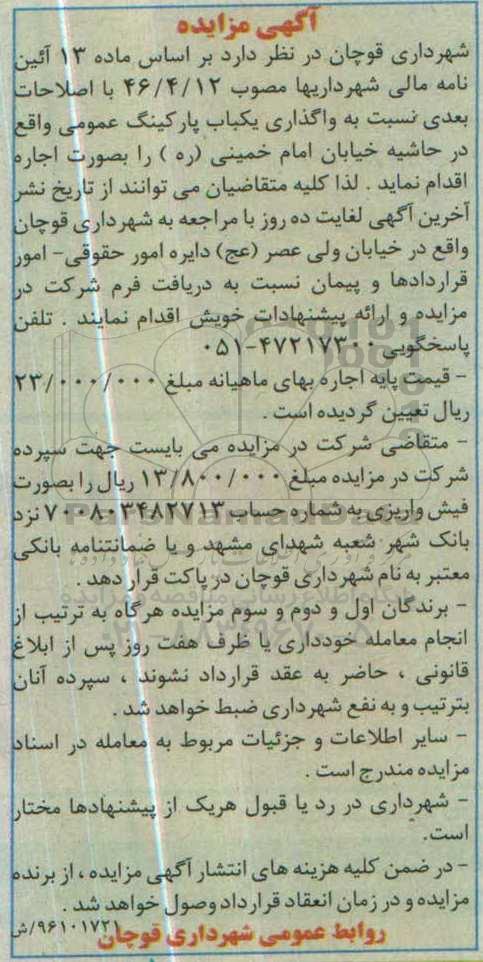 آگهی مزایده
شهرداری قوچان در نظر دارد بر اساس ماده ۱۳ آئین
نامه مالی شهرداریها مصوب ۴۶/۴/۱۲ با اصلاحات
بعدی نسبت به واگذاری یکباب پارکینگ عمومی واقع
در حاشیه خیابان امام خمینی (ره ) را بصورت اجاره
اقدام نماید . لذا کلیه متقاضیان می توانند از تاریخ نشر
آخرین آگهی لغایت ده روز با مراجعه به شهرداری قوچان
واقع در خیابان ولی عصر (عج) دایره امور حقوقی- امور
قراردادها و پیمان نسبت به دریافت فرم شرکت در
مزایده و ارائه پیشنهادات خویش اقدام نمایند . تلفن
پاسخگویی ۴۷۲۱۷۳۰۰-۰۵۱
- قیمت پایه اجاره بهای ماهیانه مبلغ ۲۳/۰۰۰/۰۰۰
ریال تعیین گردیده است .
- متقاضی شرکت در مزایده می بایست جهت سپرده
شرکت در مزایده مبلغ ۱۳/۸۰۰/۰۰۰ ریال را بصورت
فیش واریزی به شماره حساب ۷۰۰۸۰۳۴۸۲۷۱۳ نزد
بانک شهر شعبه شهدای مشهد و یا ضمانتنامه بانکی
معتبر به نام شهرداری قوچان در پاکت قرار دهد .
- برندگان اول و دوم و سوم مزایده هرگاه به ترتیب از
انجام معامله خودداری یا ظرف هفت روز پس از ابلاغ
قانونی ، حاضر به عقد قرارداد نشوند ، سپرده آنان
بترتیب و به نفع شهرداری ضبط خواهد شد .
- سایر اطلاعات و جزئیات مربوط به معامله در اسناد
مزایده مندرج است .
- شهرداری در رد یا قبول هریک از پیشنهادها مختار
است.
- در ضمن کلیه هزینه های انتشار آگهی مزایده ، از برنده
مزایده و در زمان انعقاد قرارداد وصول خواهد شد .
روابط عمومی شهرداری قوچان ۹۶۱۰۱۷۲۱/ش